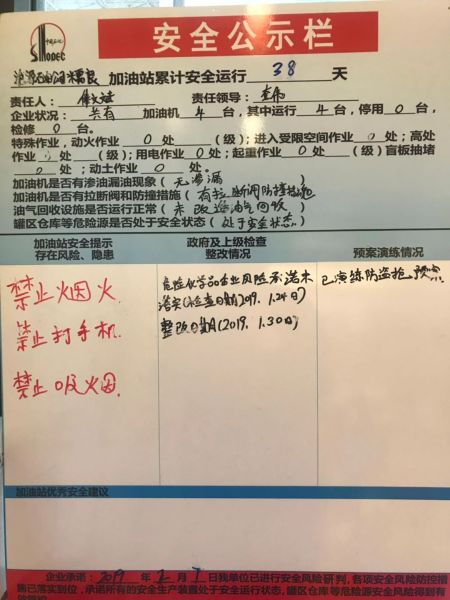 中国石化
Sinopec
安全公示栏
加油站累计安全运行 38 天
责任人： 责任领导：
企业状况：共有 加油机 4 台，其中运行 4 台，停用 0 台，
检修 0 台。
特殊作业，动火作业 0 处 （级）；进入受限空间作业 0 处；高处
作业 0 处 （级）；用电作业 0 处；起重作业 0 处；盲板抽堵
0 处；动土作业 0 处。
加油机是否有渗油漏油现象（无渗漏）
加油机是否有拉断阀和防撞措施（有拉断阀防撞措施
油气回收设施是否运行正常（未改造油气回收）
罐区仓库等危险源是否处于安全状态（处于安全状态）
加油站安全提示
存在风险、隐患
政府及上级检查
整改情况
预案演练情况
禁止烟火
禁止打手机
禁止吸烟
危险化学品企业风险承诺未
落实(检查日期2019. 1.24日)
整改日期(2019. 1.30日)
已演练防盗抢预案
加油站优秀安全建议
企业承诺：2019 年 2 月 7 日我单位已进行安全风险研判，各项安全风险防控措
施已落实到位，承诺所有的安全生产装置处于安全运行状态，罐区仓库等危险源安全风险得到有